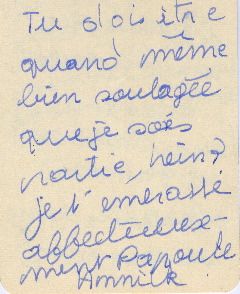 Tu dois être
quand même
bien soulagée
que je sois
partie, hein?
je t'embrasse
affectueuse-
ment Papoute
Annick